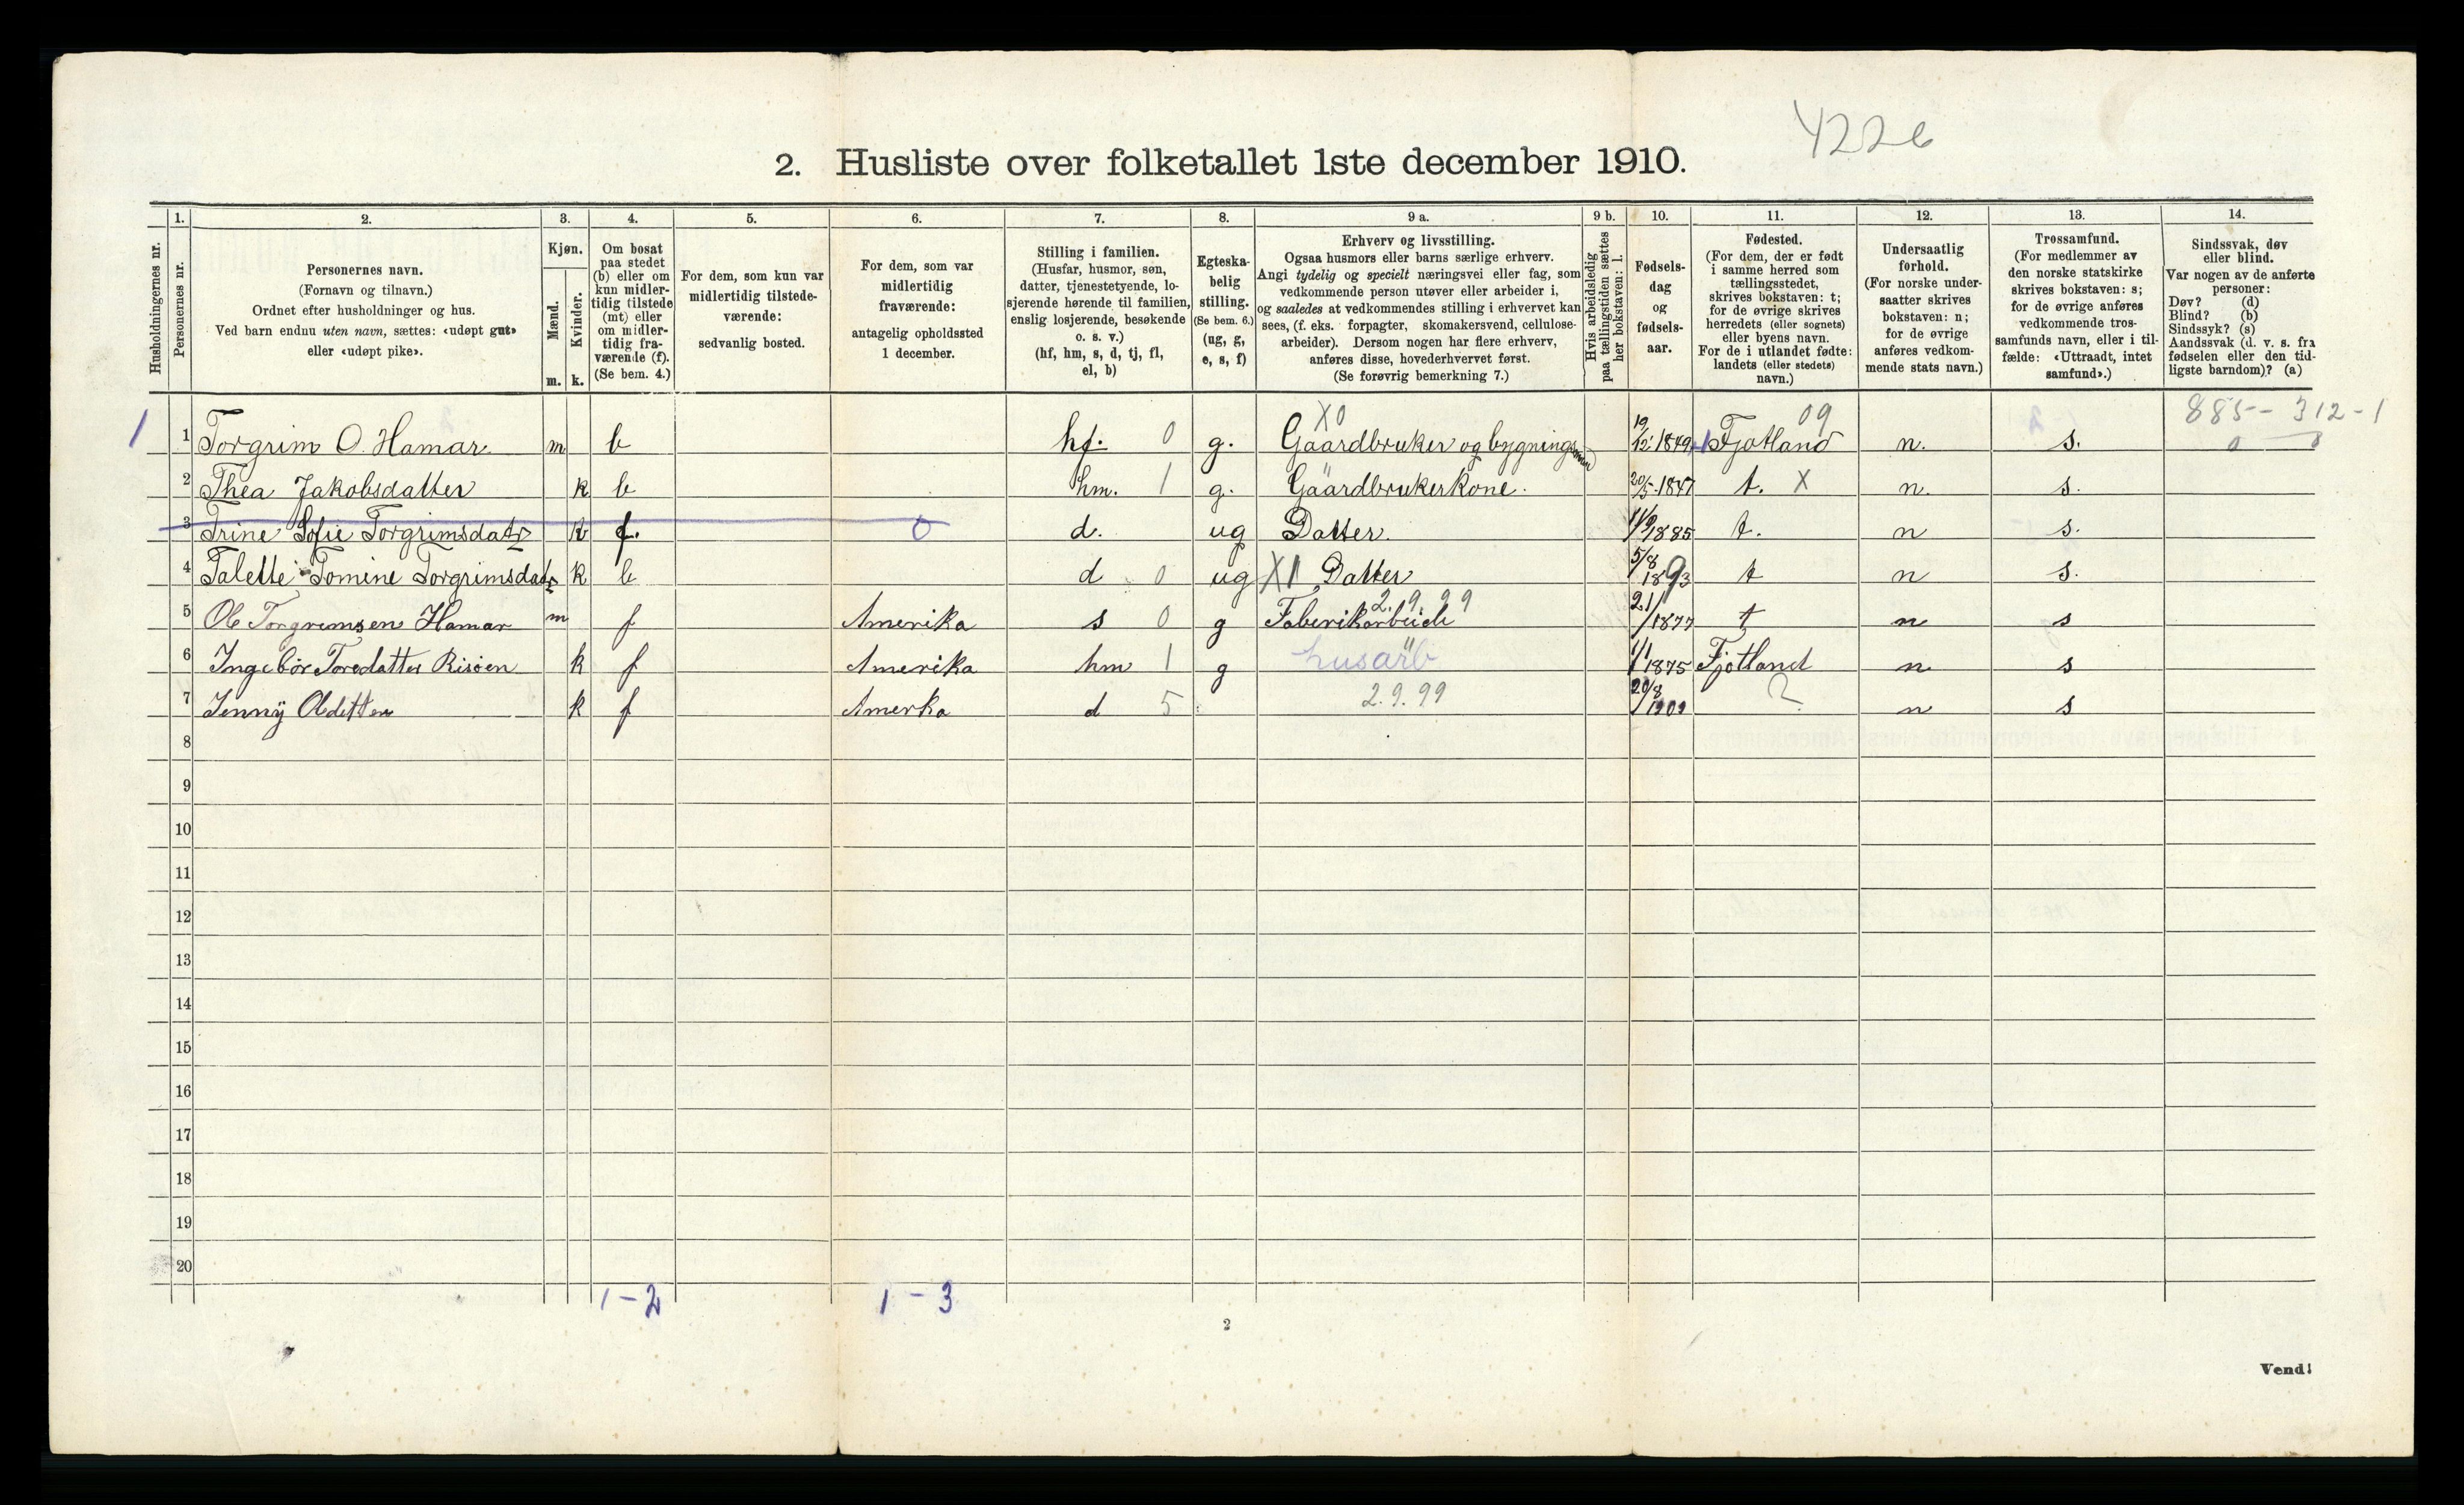 4226
2. Husliste over folketallet 1ste december 1910.
Husholdningernes nr.
1.
Personernes nr.
2.
Personernes navn.
(Fornavn og tilnavn.)
Ordnet efter husholdninger og hus.
Ved barn endnu uten navn, sættes: «udøpt gut»
eller «udøpt pike».
3.
Kjøn.
Mænd.
m.
Kvinder.
k.
4.
Om bosat
paa stedet
(b) eller om
kun midler-
tidig tilstede
(mt) eller
om midler-
tidig fra-
værende (f).
(Se bem. 4.)
5.
For dem, som kun var
midlertidig tilstede-
værende:
sedvanlig bosted.
6.
For dem, som var
midlertidig
fraværende:
antagelig opholdssted
1 december.
7.
Stilling i familien.
(Husfar, husmor, søn,
datter, tjenestetyende, lo-
sjerende hørende til familien,
enslig losjerende, besøkende
o. s. v.)
(hf, hm, s, d, tj, fl,
el, b)
8.
Egteska-
belig
stilling.
(Se bem. 6.)
(ug, g,
e, s, f)
9 a.
Erhverv og livsstilling.
Ogsaa husmors eller barns særlige erhverv.
Angi tydelig og specielt næringsvei eller fag, som
vedkommende person utøver eller arbeider i,
og saaledes at vedkommendes stilling i erhvervet kan
sees, (f. eks. forpagter, skomakersvend, cellulose-
arbeider). Dersom nogen har flere erhverv,
anføres disse, hovederhvervet først.
(Se forøvrig bemerkning 7.)
9 b.
Hvis arbeidsledig
paa tællingstiden sættes
her bokstaven: l.
10.
Fødsels-
dag
og
fødsels-
aar.
11.
Fødested.
(For dem, der er født
i samme herred som
tællingsstedet,
skrives bokstaven: t;
for de øvrige skrives
herredets (eller sognets)
eller byens navn.
For de i utlandet fødte:
landets (eller stedets)
navn.)
12.
Undersaatlig
forhold.
(For norske under-
saatter skrives
bokstaven: n;
for de øvrige
anføres vedkom-
mende stats navn.)
13.
Trossamfund.
(For medlemmer av
den norske statskirke
skrives bokstaven: s;
for de øvrige anføres
vedkommende tros-
samfunds navn, eller i til-
fælde: «Uttraadt, intet
samfund».)
14.
Sindssvak, døv
eller blind.
Var nogen av de anførte
personer:
Døv? (d)
Blind? (b)
Sindssyk? (s)
Aandssvak (d. v. s. fra
fødselen eller den tid-
ligste barndom)? (a)
X0 09 885-312-1
1 1 Torgrim O. Hamar m b hf. 0 g. Gaardbruker og bygningsmand 19/12 1849 Fjotland n. s.
2 Thea Jakobsdatter k b hm. 1 g. Gaardbrukerkone. 20/5 1847 t. X n. s.
3 Trine Sofie Torgrimsdatr k f. 0 d. ug Datter. 11/9 1885 t. n s.
4 Talette Tomine Torgrimsdatr k b d 0 ug X1 Datter 5/8 1893 t n s.
2.9.99
5 Ole Torgrimsen Hamar m f Amerika s 0 g Faberikarbeide 21/1 1877 t n s
6 Ingebør Toredatter Risøen k f Amerika hm 1 g husarb 1/1 1875 Fjotland n s
7 Jenny Oledatter k f Amerka d 5 2.9.99 20/8 1909 ? n s
8
9
10
11
12
13
14
15
16
17
18
19
20
1-2 1-3
2
Vend!